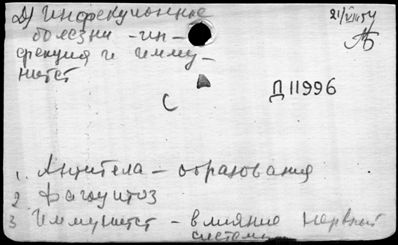 2) Инфекционные
болезни - ин-
фекция и имму-
нитет
21/VIII 54
АБ
С
Д 11996
1. Антитела - образования
2 Фагоцитоз
3 Иммунитет - влияние нервной
системы